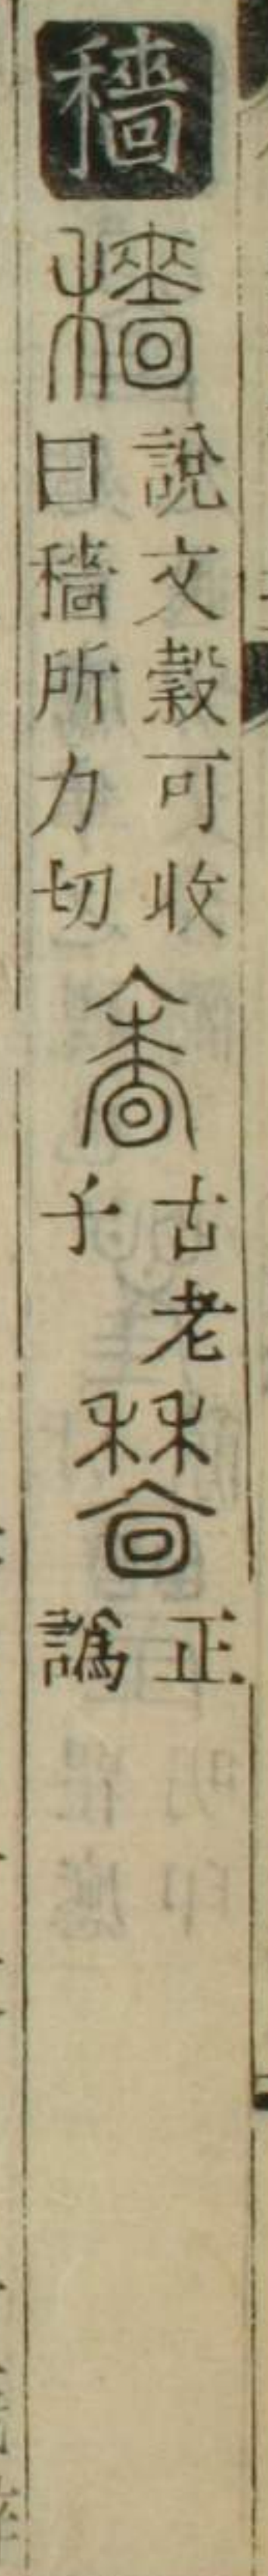 穡
說文穀可收
曰穡所力切
古老
子
正
譌